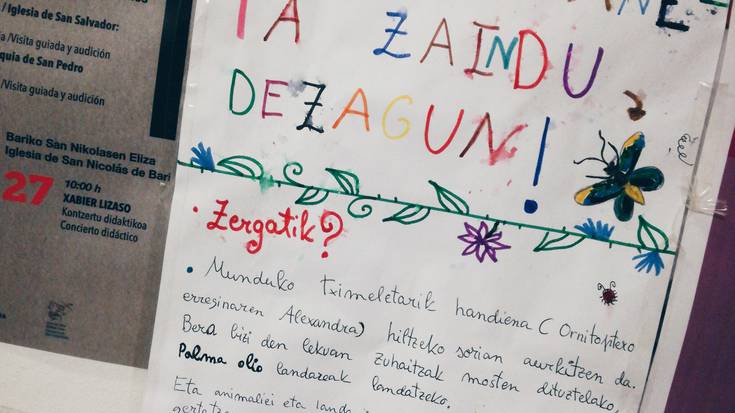 / Iglesia de San Salvador:
/Visita guiada y audición
quia de San Pedro
/Visita guiada y audición
Bariko San Nikolasen Eliza
Iglesia de San Nicolás de Bari
27
10:00 h
XABIER LIZASO
Kontzertu didaktikoa
Concierto didáctico
TA ZAINDU
DEZAGUN!
• Zergatik?
• Munduko tximeletarik handiena ( Ornitoptero
erreginaren Alexandra) hiltzeko sorian aurkitzen da.
Bera bizi den lekuan zuhaitzak mosten dituztelako,
Palma olio landareak landatzeko.
Eta animaliei eta